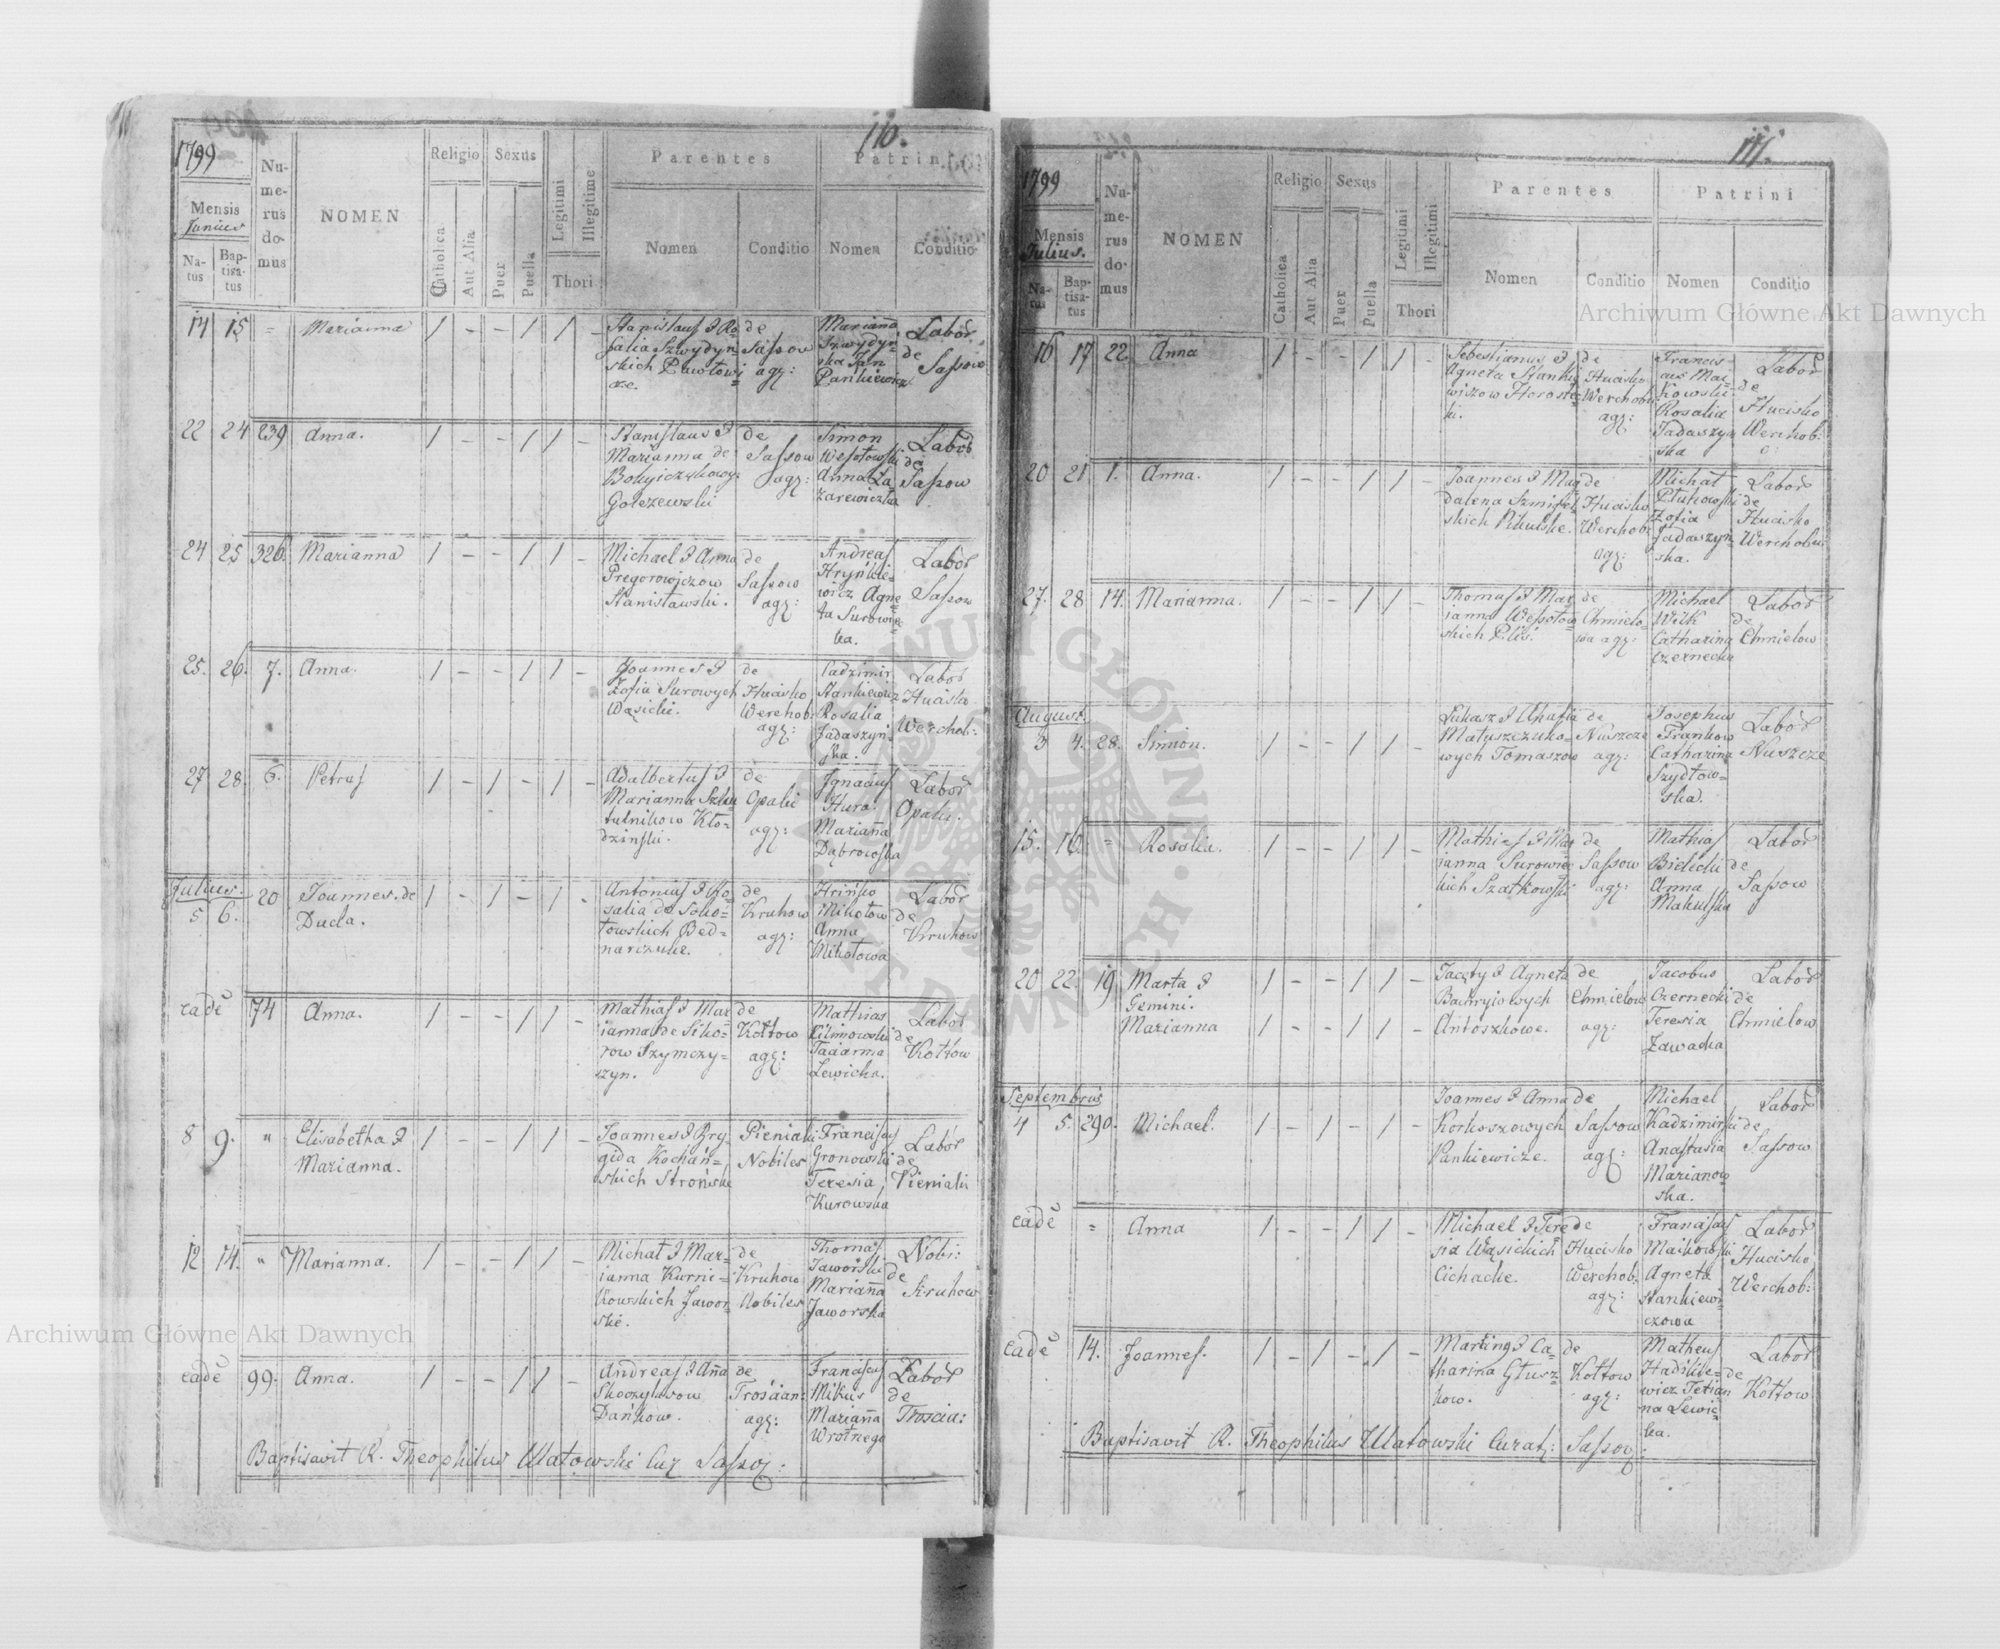 110.
1799
Mensis
Junius
Na-
tus
Bap-
tisa-
tus
Nu-
me-
rus
do-
mus
NOMEN
Religio
Catholica
Aut Alia
Sexus
Puer
Puella
Legitimi
Illegitime
Thori
Parentes
Nomen
Conditio
Patrini
Nomen
Conditio
14 15 = Marianna / - - / / -
Stanislaus & Ro
salia Szwydyn
skich Pawłowi
cze.
de
Sassow
agr:
Marianna
Szwydyn
ska Jan
Pankiewicz
Labor
de
Sassow
22 24 239 Anna. / - - / / -
Stanislaus &
Marianna de
Golczewski
de
Sassow
agr:
Simon
Wesołowski
Anna La
zarewiczka
Labor
de
Sassow
24 25 326. Marianna / - - / / -
Michael & Anna
Pregorowiczow
Stanisławski.
de
Sassow
agr:
Andreas
Hryńkie=
wicz Agne
ta Surowie
cka.
Labor
Sassow
25. 26. 7. Anna. / - - / / -
Joannes &
Zofia Surowych
Wąsicki.
de
Hucisko
Werchob:
agr:
Cadzimir
Stankiewicz
Rosalia
Jadaszyn
ska.
Labor
Huciska
Werchob:
27 28. 6. Petrus / - / - / -
Adalbertus &
Marianna
Kło-
dziński.
de
Opaki
agr:
Ignacius
Hura
Marianna
Dąbrowska
Labor
Opaki.
Julius.
5 6. 20 Joannes de
Ducla. / - / - / -
Antonius & Ro
salia de Soko-
łowskich Bed-
narczuke.
de
Kruhow
agr:
Hrińko
Mikołow
Anna
Mikołowa
Labor
de
Kruhow
eade 74 Anna. / - - / / -
Mathias & Mar
ianna de Siko-
row Szymczy-
szyn.
de
Kołtow
agr:
Mathias
Klimowski
Tacianna
Lewicka.
Labor
de
Kołtow
8 9. " Elisabetha &
Marianna. / - - / / -
Joannes & Bry
gida Kochań-
skich Strońskie
Pieniaki
Nobiles
Franciscus
Gronowski
Teresia
Kurowska
Labor
de
Pieniaki
12 14. " Marianna. / - - / / -
Michał & Mar-
ianna Kurni-
kowskich Jawor
skie.
de
Kruhow
Nobiles
Thomas
Jaworski
Marianna
Jaworska
Nobi:
de
Kruhow
eade 99. Anna. / - - / / -
Andreas & Anna
Skoczylasow
Dańkow.
de
Trościan:
agr:
Franciscus
Mikus
Marianna
Wrotnego
Labor
de
Troscia:
Baptisavit R. Theophilus Ulatowski Cur Sassov:
111.
1799
Mensis
Julius.
Na-
tus
Bap-
tisa-
tus
Nu-
me-
rus
do-
mus
NOMEN
Religio
Catholica
Aut Alia
Sexus
Puer
Puella
Legitimi
Illegitimi
Thori
Parentes
Nomen
Conditio
Patrini
Nomen
Conditio
16 17 22 Anna / - - / / -
Sebestianus &
Agneta Stankie
wiczow
de
Hucisko
Werchobu:
agr:
Francis-
cus Mai-
kowski
Rosalia
Jadaszyn
ska
Labor
de
Hucisko
Werchob:
20 21 1. Anna. / - - / / -
Joannes & Mag
dalena
skich Pikulske.
de
Hucisko
Werchob:
agr:
Michał
Płuhowski
Zofia
Jadaszyn-
ska.
Labor
de
Hucisko
Werchobu:
27. 28 14. Marianna. / - - / / -
Thomas & Mar
ianna Wesołow
skich Plis.
de
Chmielo-
wa agr:
Michael
Wilk
Catharina
Czernecka
Labor
de
Chmielow
August.
3 4. 28. Simion. / - - / / -
Lukasz & Ahafia
Matuszczuko-
wych Tomaszow
de
Nuszcze
agr:
Josephus
Frankow
Catharina
Szydłow-
ska.
Labor
Nuszcze
15. 16. = Rosalia. / - - / / -
Mathias & Mar
ianna Surowie
ckich Szatkowski
de
Sassow
agr:
Mathias
Bielecki
Anna
Makulska
Labor
de
Sassow
20 22. 19 Marta &
Gemini.
Marianna / - - / / -
/ - - / / -
Jacęty & Agneta
Bachryiowych
Antoszkowe.
de
Chmielow
agr:
Jacobus
Czernecki
Teresia
Zawacka
Labor
de
Chmielow
Septembris
4 5. 290. Michael. / - / - / -
Joannes & Anna
Korkoszowych
Pankiewicze.
de
Sassow
agr:
Michael
Kadzimirski
Anastasia
Marianow
ska.
Labor
de
Sassow
eade = Anna / - - / / -
Michael & Tere
sia Wąsickich
Cichacke.
de
Hucisko
Werchob:
agr:
Franciscus
Maikowski
Agneta
Stankiewi-
czowa
Labor
Hucisko
Werchob:
eade 14. Joannes. / - / - / -
Martinus & Ca-
tharina Głusz-
kow.
de
Kołtow
agr:
Matheus
wicz Tetian
na Lewic
cka.
Labor
de
Kołtow
Baptisavit R. Theophilus Ulatowski Curat: Sassov:
Archiwum Główne Akt Dawnych
Archiwum Główne Akt Dawnych
ARCHIWUM GŁÓWNE AKT DAWNYCH